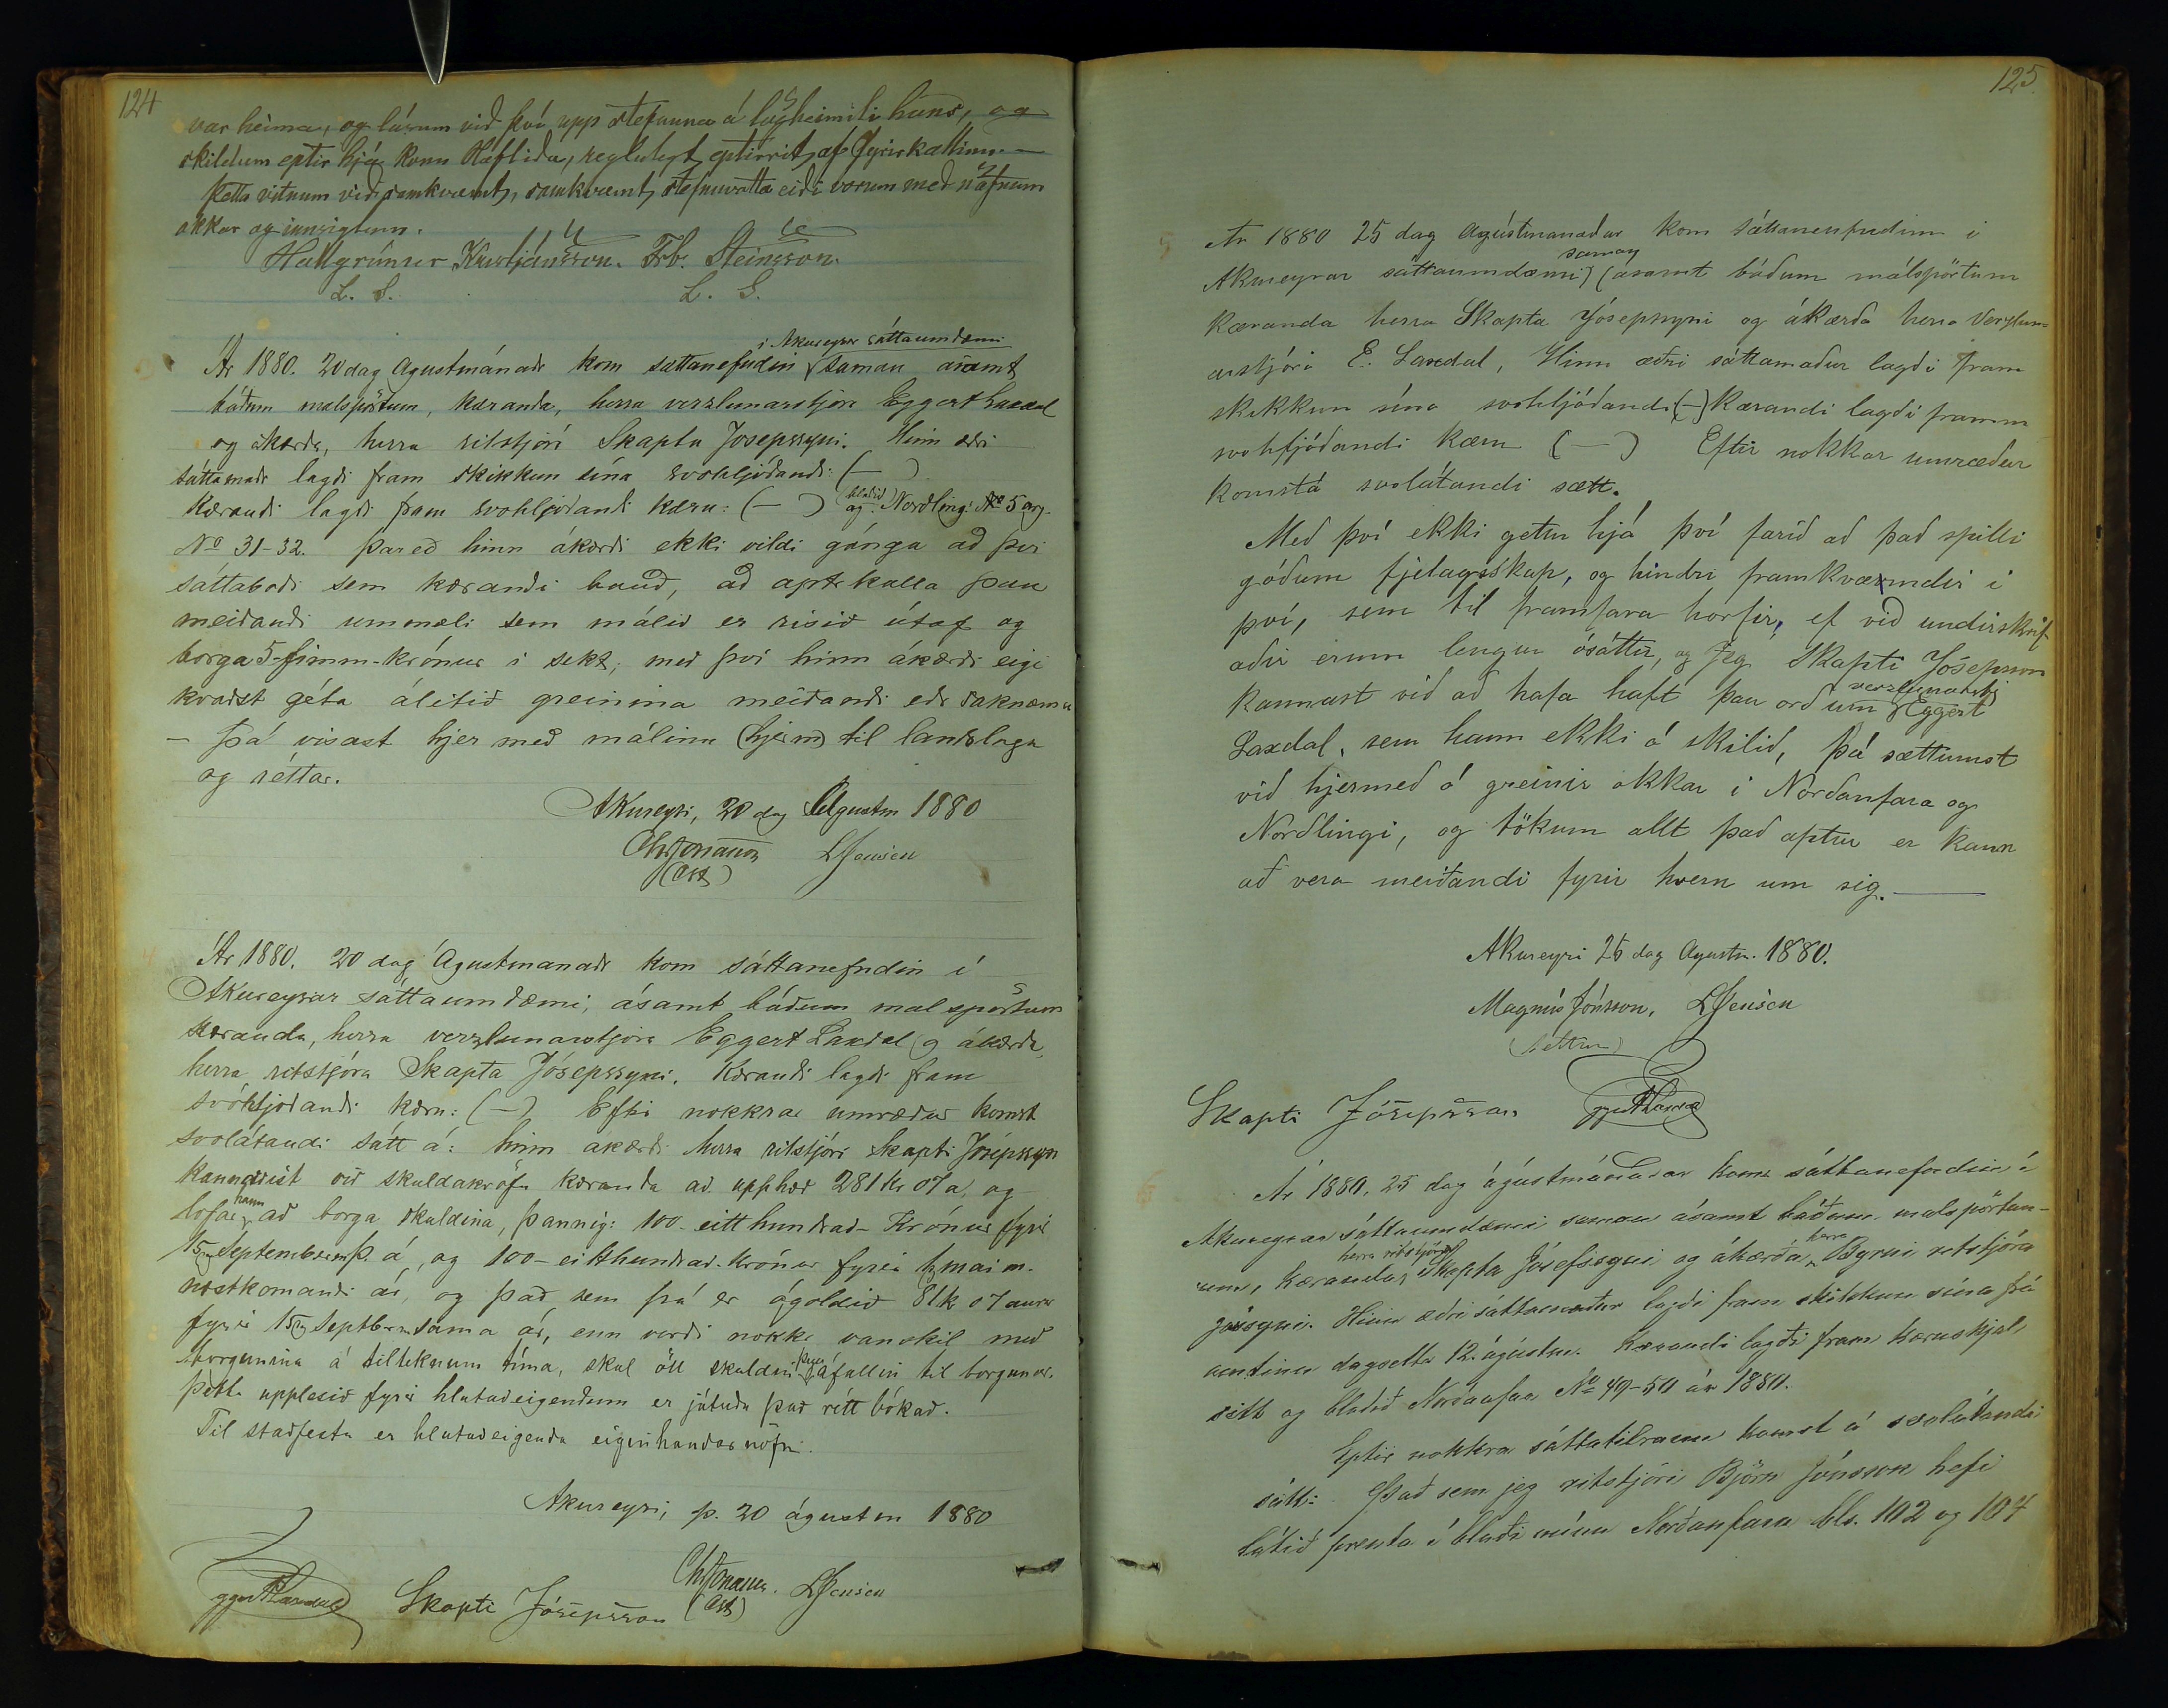 124
var heima, og lásum við því upp stefnuna á lögheimili hans, og
skildum eptir hjá konu Hafliða, reglulegt eptirrit af fyrirkallinu. —
Þetta vitnum við samkvæmt, samkvæmt stefnuvotta eiði vorum með nöfnum
okkar og innsiglum.
Hallgrímur Kristjánsson. Frb. Steinsson.
L. S. L. S.
í Akureyrar sáttaumdæmi
Ár 1880. 20 dag Agustmánaðr kom sattanefndin saman ásamt
báðum malspörtum, kæranda, herra verzlunarstjóra Eggert Laxdal
og ákærða, herra ritstjóri Skapta Josepssyni. Hinn æðri
sáttamaðr lagði fram skikkun sína svohljóðandi: (—)
Kærandi lagði fram svohljóðandi kæru: (—) og blaðið Norðling: No 5 arg.
No 31-32. Þareð hinn ákærði ekki vildi gánga að því
sáttaboði sem kærandi bauð, að aptrkalla þau
meiðandi ummæli sem málið er risið útaf og
borga 5-fimm-krónur i sekt; með því hinn ákærði eigi
kvaðst géta álitið greinina meiðandi eðr saknæma
— Þá visast hjer með málinu (hjerm) til landslaga
og réttar.
Akureyri, 20 dag Agustm 1880
Chr Jonasson LJensen
(Ast)
Ár 1880. 20 dag Águstmanaðr kom sáttanefndin í
Akureyrar sáttaumdæmi, ásamt báðum malspörtum
kæranda, herra verzlunarstjóra Eggert Laxdal og ákærða,
herra ritstjóra Skapta Jósepssyni. Kærandi lagði fram
svohljóðandi kæru: (—) Eftir nokkrar umræður komst
svolátandi sátt á: hinn akærði herra ritstjóri Skapti Jósepsson
kannaðist við skuldakröfu kæranda að upphæð 281 kr 07 a, og
lofar hann að borga skuldina, þannig: 100 - eitt hundrað - Krónur fyrir
15 September þ. á, og 100 - eitthundrað - krónur fyrir maim.
næstkomandi ár, og það sem þá er ógoldið 81k 07 aura
fyrir 15 Septbr sama ár, enn verði nokkr vanskil með
borgunina á tilteknum tíma, skal öll skuldin þegar áfallin til borgunar.
Þetta upplesið fyrir hlutaðeigendum er játuðu það rétt bókað.
Til staðfestu er hlutaðeigenda eiginhandar nöfn.
Akureyri, þ. 20 ágúst m 1880
Eggert Laxdal Skapti Jósepsson Chr Jonasson. LJensen
(Ast)
125.
Ár 1880 25 dag Agústmanaðar kom sáttanefndinn i
Akureyrar sáttaumdæmi saman ásamt báðum málspörtum
kæranda herra Skapta Jósepssyni og ákærða herra Verzlun-
arstjóri E. Laxdal, Hinn æðri sáttamaður lagði fram
skikkun sína svohljóðandi (—) Kærandi lagði framm
svohljóðandi kæru (—) Eftir nokkar umræður
komst á svolátandi sætt.
Með því ekki getur hjá því farið að það spilli
góðum fjelagsskap, og hindri framkvæmdir í
því, sem til framfara horfir, ef við undirskrif
aðir erum lengur ósáttir, og Jeg Skapti Jósepsson
kannast við að hafa haft þau orð um verzlunarstj Eggert
Laxdal, sem hann ekki á skilið, þá sættumst
við hjermeð á greinir okkar i Norðanfara og
Norðlingi, og tökum allt það aptur er kann
að vera meiðandi fyrir hvern um sig. —
Akureyri 25 dag Agustm. 1880.
Magnús Jónsson, LJensen
(settur)
Skapti Jósepsson Eggert Laxdal
Ár 1880, 25 dag ágústmánaðar kom sáttanefndin í
Akureyrar sáttaumdæmi saman ásamt báðum malspörtun-
um, kæranda, herra ritstjóra Skapta Jósefssyni og ákærða, herra Byrni ritstjóra
Jónssyni. Hinn æðri sáttamaður lagði fram skikkun sína frá
amtinu dagsetta 12. ágústm. Kærandi lagði fram kæruskjal
sitt og blaðið Norðanfara No 49-50 ár 1880.
Eptir nokkra sáttatilraun komst á svolátandi
sátt: Það sem jeg ritstjóri Björn Jónsson hefi
látið prenta í blaði mínu Norðanfara bls. 102 og 104